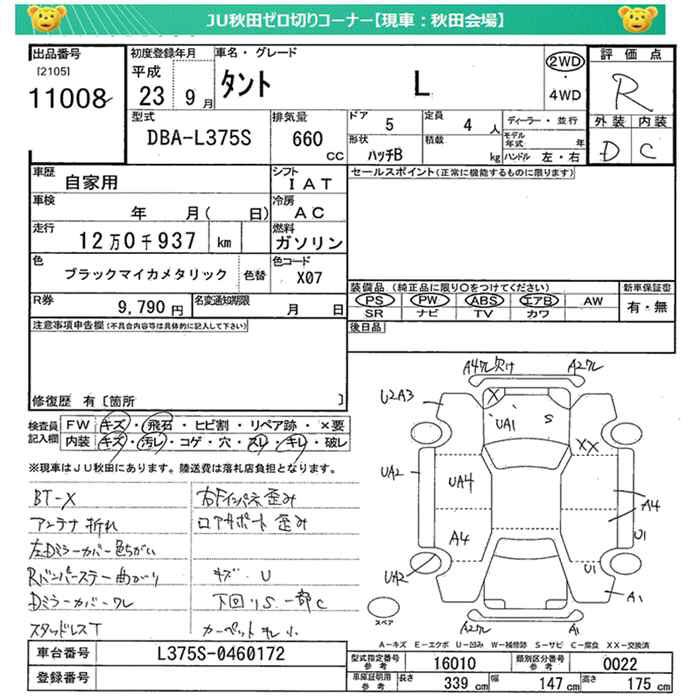 JU秋田ゼロ切りコーナー【現車:秋田会場】
出品番号 [2105] 11008
初度登録年月 平成 23 9月
車名・グレード タント L
2WD・4WD
評価点 R
外装 内装
D C
型式 DBA-L375S
排気量 660 CC
ドア 5
定員 4人
ディーラー・並行
形状 ハッチB
積載 kg
モデル年式 年
ハンドル 左・右
車歴 自家用
シフト IAT
セールスポイント(正常に機能するものに限ります)
車検 年 月( 日)
冷房 AC
走行 12万0千937 km
燃料 ガソリン
色 ブラックマイカメタリック 色替
色コード X07
装備品(純正品に限り○をつけてください)
新車保証書 有・無
PS PW ABS エアB AW
SR ナビ TV カワ
R券 9,790円
名変通知期限 月 日
後日品
注意事項申告欄(不具合内容等は具体的に記入して下さい)
修復歴 有〔箇所 〕
検査員記入欄
FW キズ・飛石・ヒビ割・リペア跡・×要
内装 キズ・汚レ・コゲ・穴・スレ・キレ・破レ
※現車はJU秋田にあります。陸送費は落札店負担となります。
BT-X
アンテナ折れ
左Dミラーカバー色ちがい
Rバンパーステー曲がり
Dミラーカバーワレ
スタッドレスT
右Fインパネ歪み
ロアサポート歪み
キズ U
下回りS 一部C
カーペットキレ小
A4ワレ欠け
A2ワレ
U2A3
X
UA1
S
XX
UA2
UA4
A4
A4
U1
U1
UA2
A1
A2ワレ
A1
スペア
A-キズ E-エクボ U-凹み W-補修跡 S-サビ C-腐食 XX-交換済
車台番号 L375S-0460172
登録番号
型式指定番号 参考 16010
類別区分番号 参考 0022
車庫証明用 参考
長さ 339cm
幅 147cm
高さ 175cm